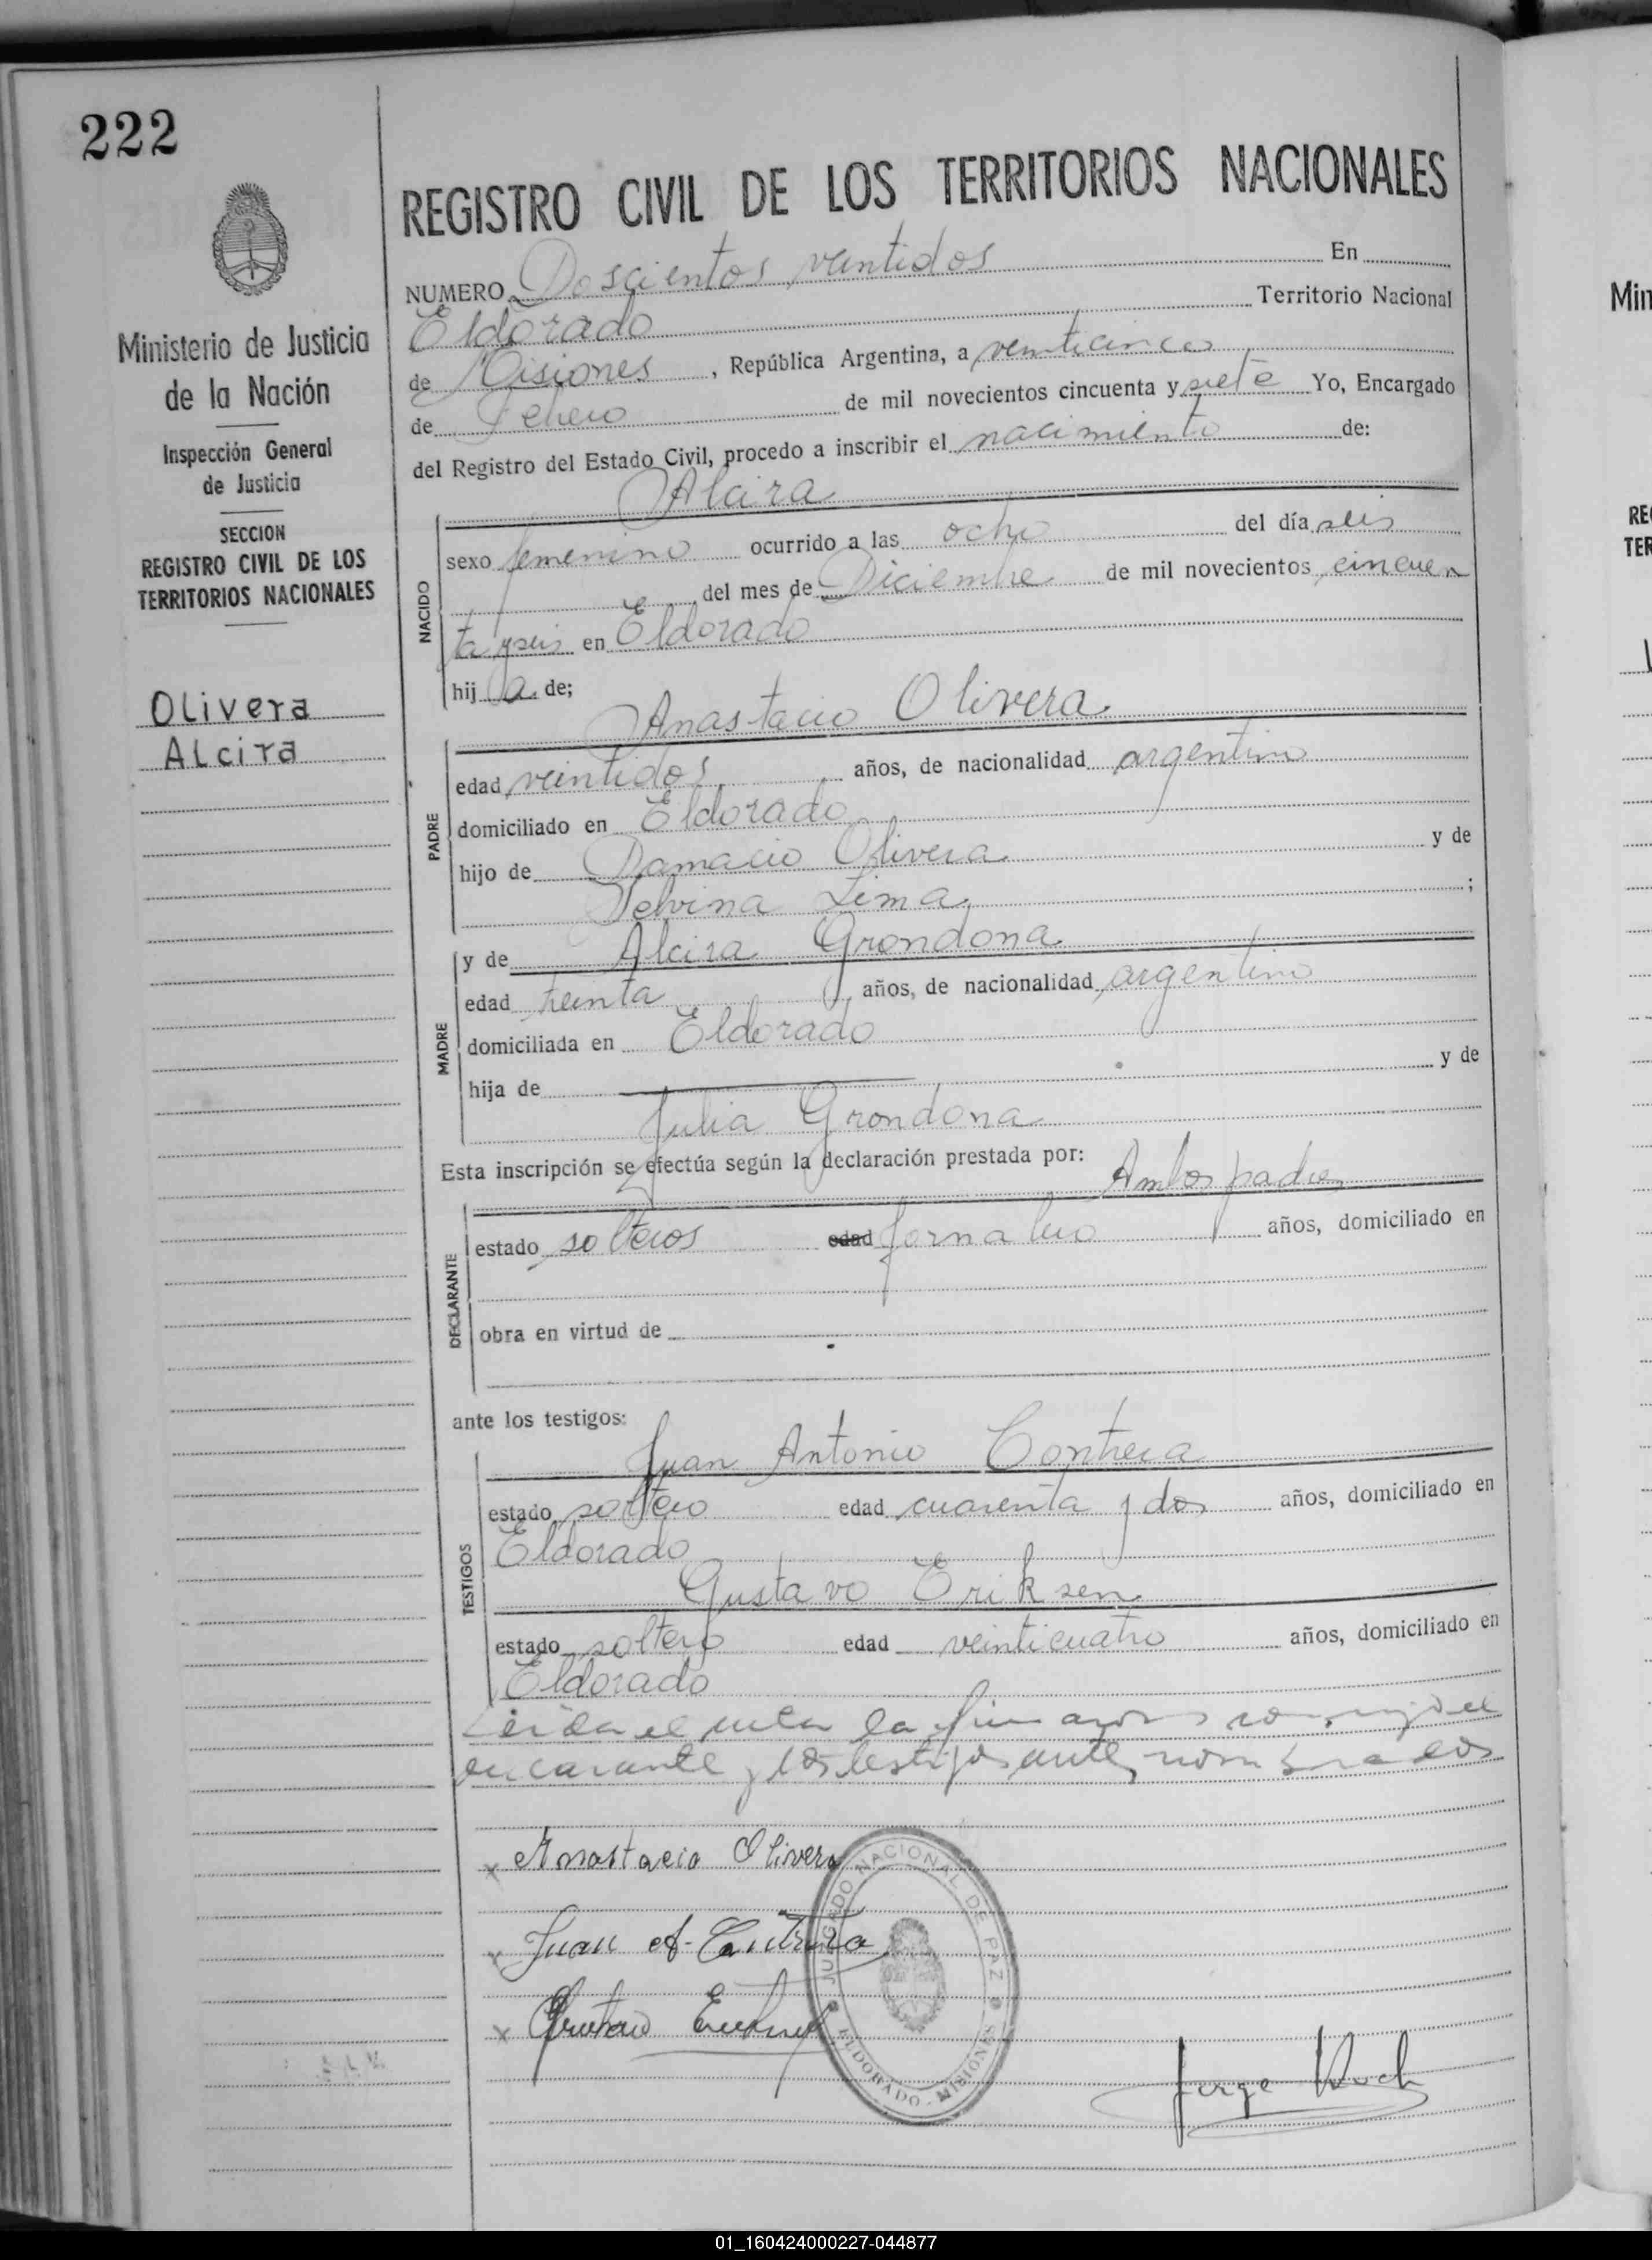 222
REGISTRO CIVIL DE LOS TERRITORIOS NACIONALES
Ministerio de Justicia
de la Nación
Inspección General
de Justicia
SECCION
REGISTRO CIVIL DE LOS
TERRITORIOS NACIONALES
Olivera
Alcira
NUMERO Doscientos veintidos En
Eldorado Territorio Nacional
de Misiones, República Argentina, a veinticinco
de Febrero de mil novecientos cincuenta y siete Yo, Encargado
del Registro del Estado Civil, procedo a inscribir el nacimiento de:
NACIDO
Alcira
sexo femenino ocurrido a las ocho del día seis
del mes de Diciembre de mil novecientos cincuen
ta y seis en Eldorado
hij a de;
PADRE
Anastacio Olivera
edad veintidos años, de nacionalidad argentino
domiciliado en Eldorado
hijo de Damacio Olivera y de
Delvina Lima ;
MADRE
y de Alcira Grondona
edad treinta años, de nacionalidad argentino
domiciliada en Eldorado
hija de y de
Julia Grondona
Esta inscripción se efectúa según la declaración prestada por:
DECLARANTE
Ambos padres
estado solteros edad jornalero años, domiciliado en
obra en virtud de
ante los testigos:
TESTIGOS
Juan Antonio Contrera
estado soltero edad cuarenta y dos años, domiciliado en
Eldorado
Gustavo Eriksen
estado soltero edad veinticuatro años, domiciliado en
Eldorado
Leida el acta la conmigo el
y los testigos antes nombrados
x Anastacio Olivera
x Juan A. Contrera
x Gustavo
JUZGADO NACIONAL DE PAZ
ELDORADO - MISIONES
Jorge
Min
RE
TER
01_160424000227-044877